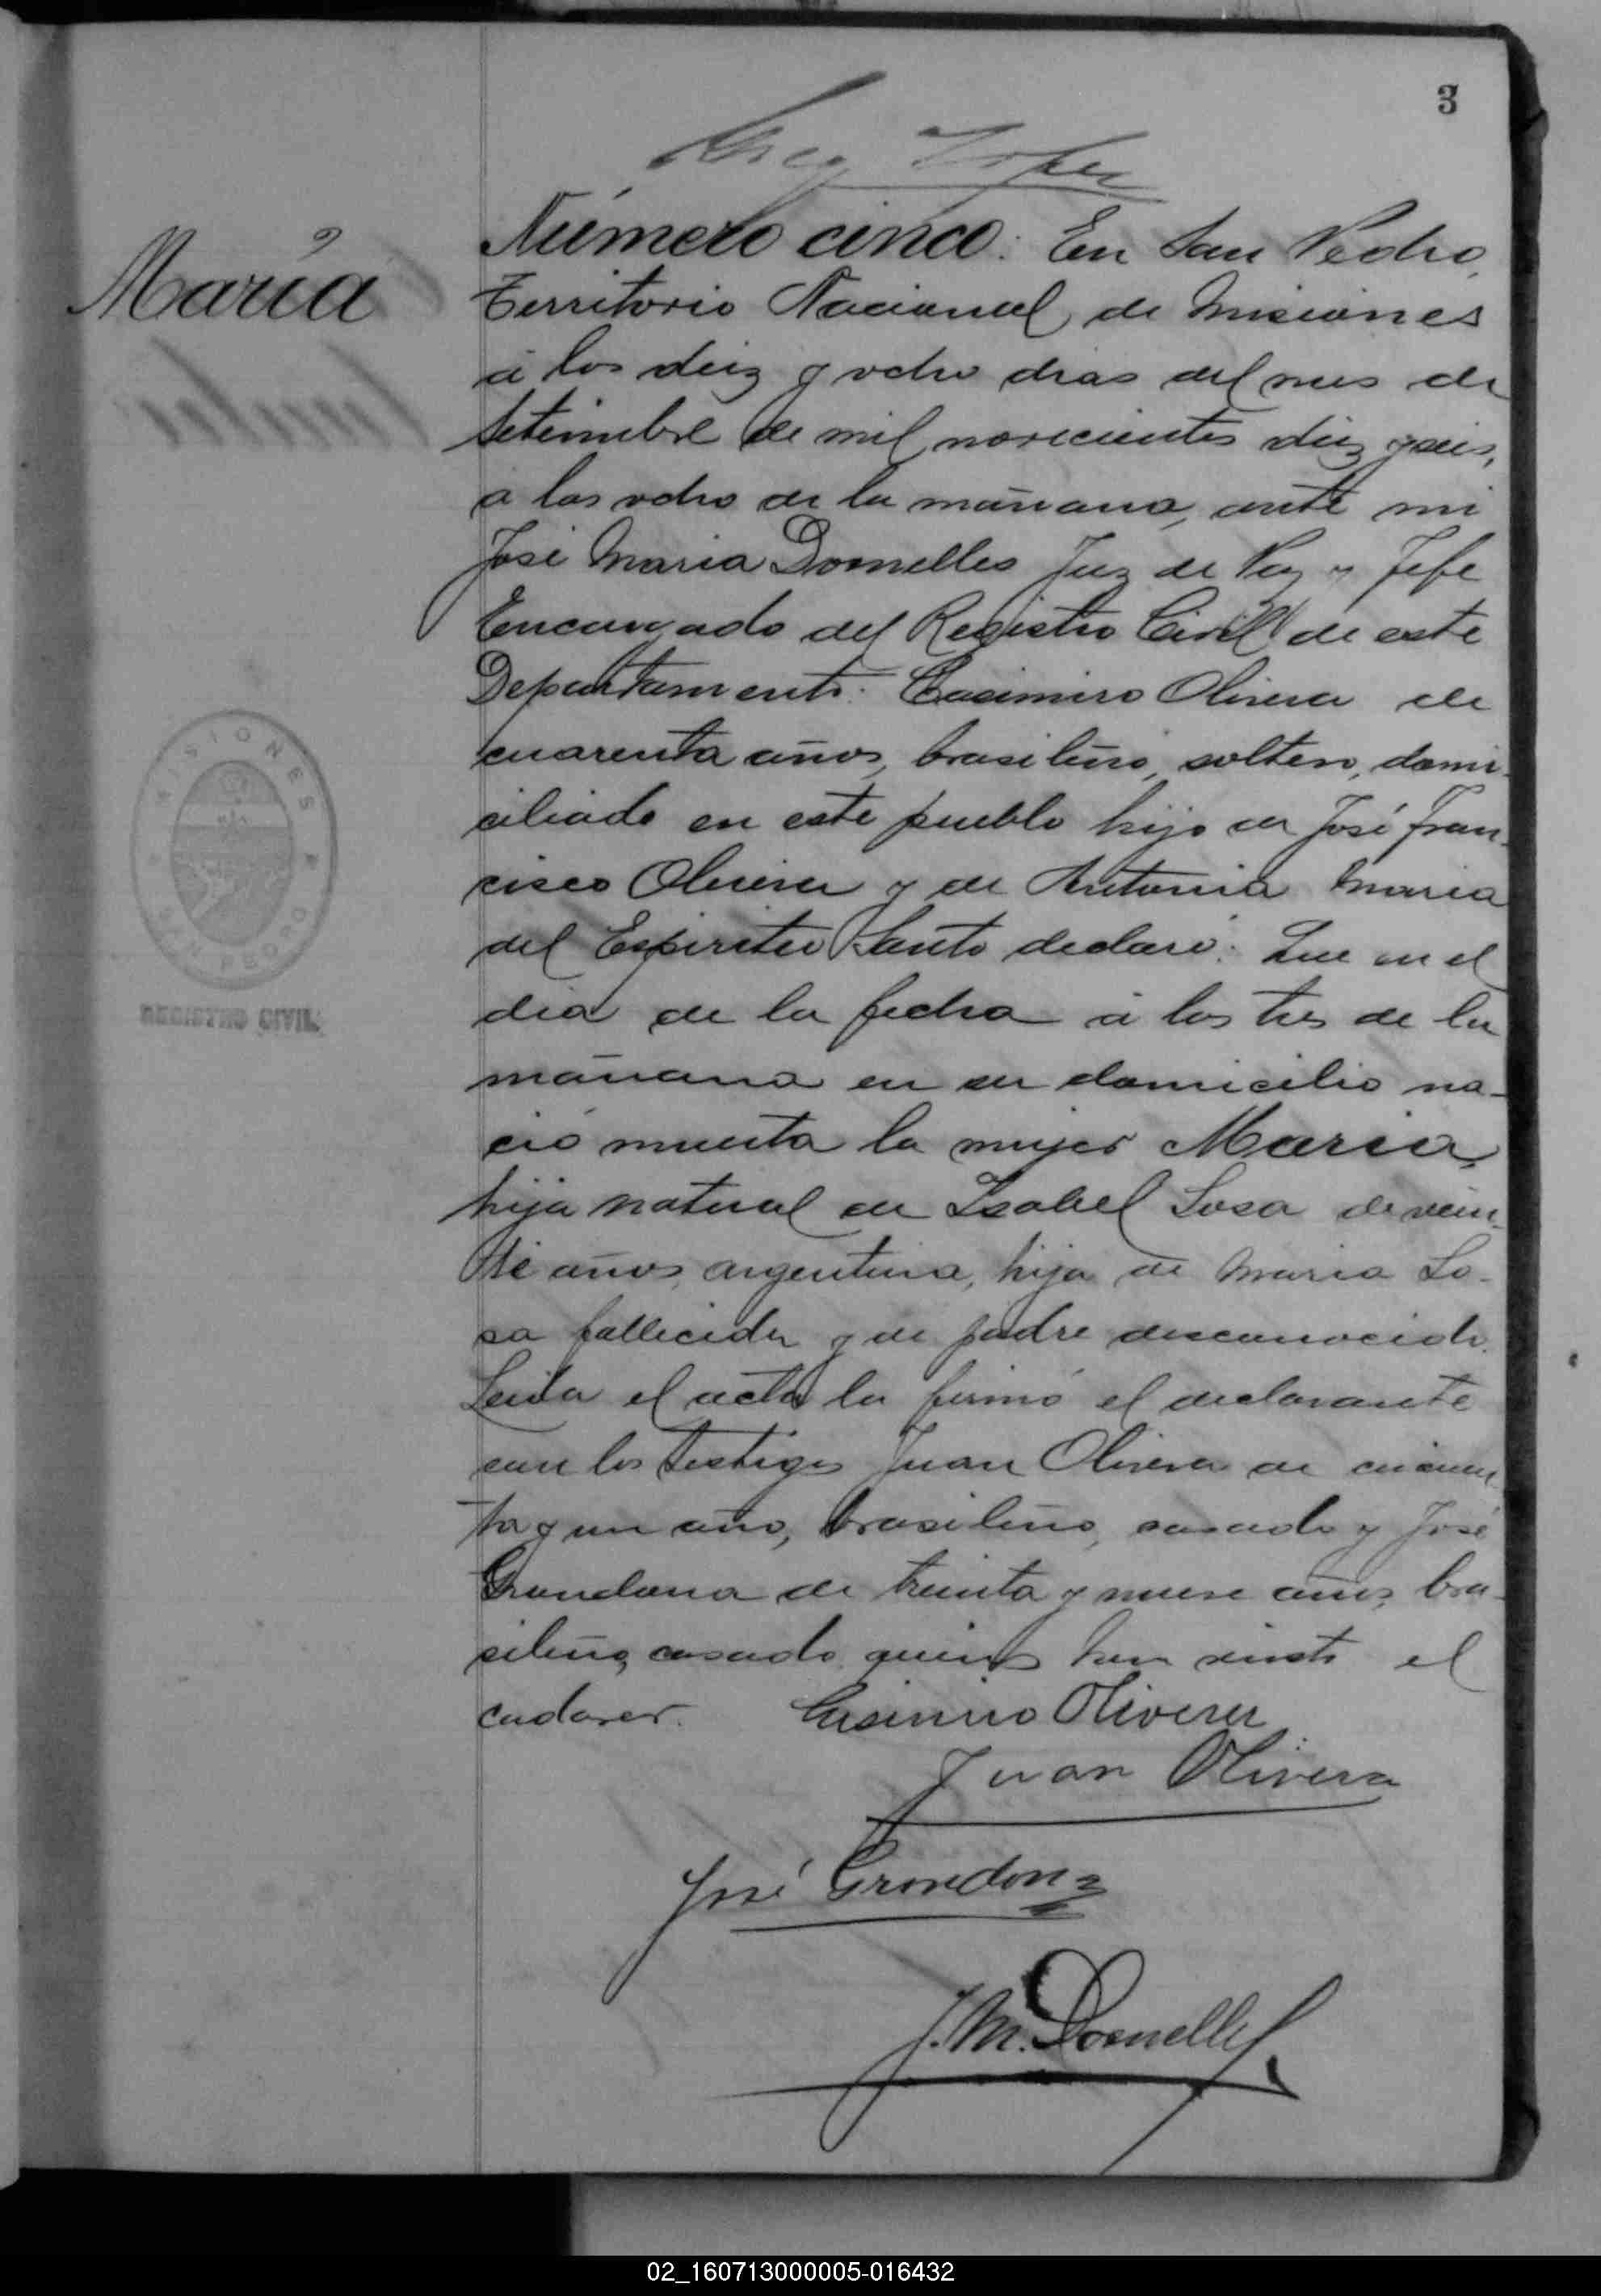 3
Lopez
María
Número cinco: En San Pedro,
Territorio Nacional de Misiones
á los diez y ocho dias del mes de
Setiembre de mil novecientos diez y seis,
a las ocho de la mañana, ante mi
José Maria Dornelles Juez de Paz y Jefe
Encargado del Registro Civil de este
Departamento: Casimiro Olivera de
cuarenta años, brasileño, soltero, domi-
ciliado en este pueblo hijo de José Fran-
cisco Olivera y de Antonia Maria
del Espiritu Santo declaró: Que en el
dia de la fecha á las tres de la
mañana en su domicilio na-
ció muerta la mujer Maria,
hija natural de Isabel Sosa de vein-
te años, argentina, hija de Maria So-
sa fallecida y de padre desconocido.
Leida el acta la firmó el declarante
con los testigos Juan Olivera de cuaren
ta y un año, brasileño, casado y José
Grondona de treinta y nueve años, bra-
sileño, casado, quienes han visto el
cadaver. Casimiro Olivera
Juan Olivera
José Grondona
J. M. Dornelles
MISIONES
SAN PEDRO
REGISTRO CIVIL
02_160713000005-016432